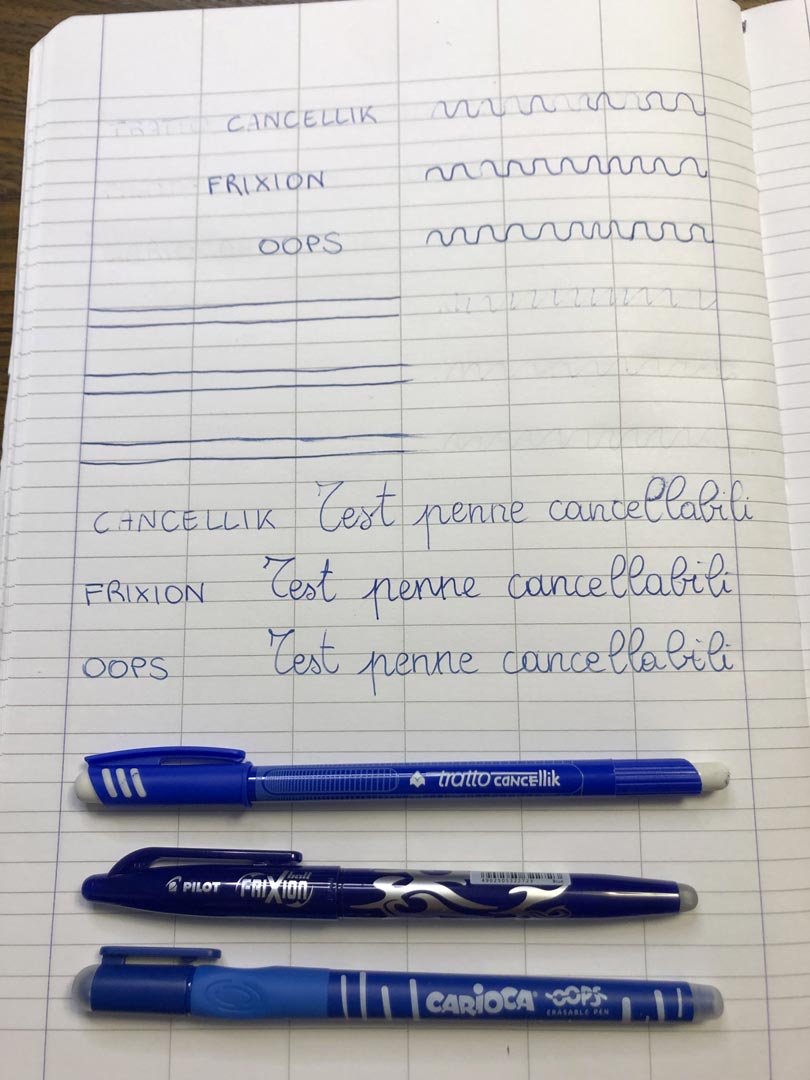 CANCELLIK
FRIXION
OOPS
CANCELLIK Test penne cancellabili
FRIXION Test penne cancellabili
OOPS Test penne cancellabili
tratto cancEllik
PILOT FRIXION ball
CARIOCA OOPS
ERASABLE PEN